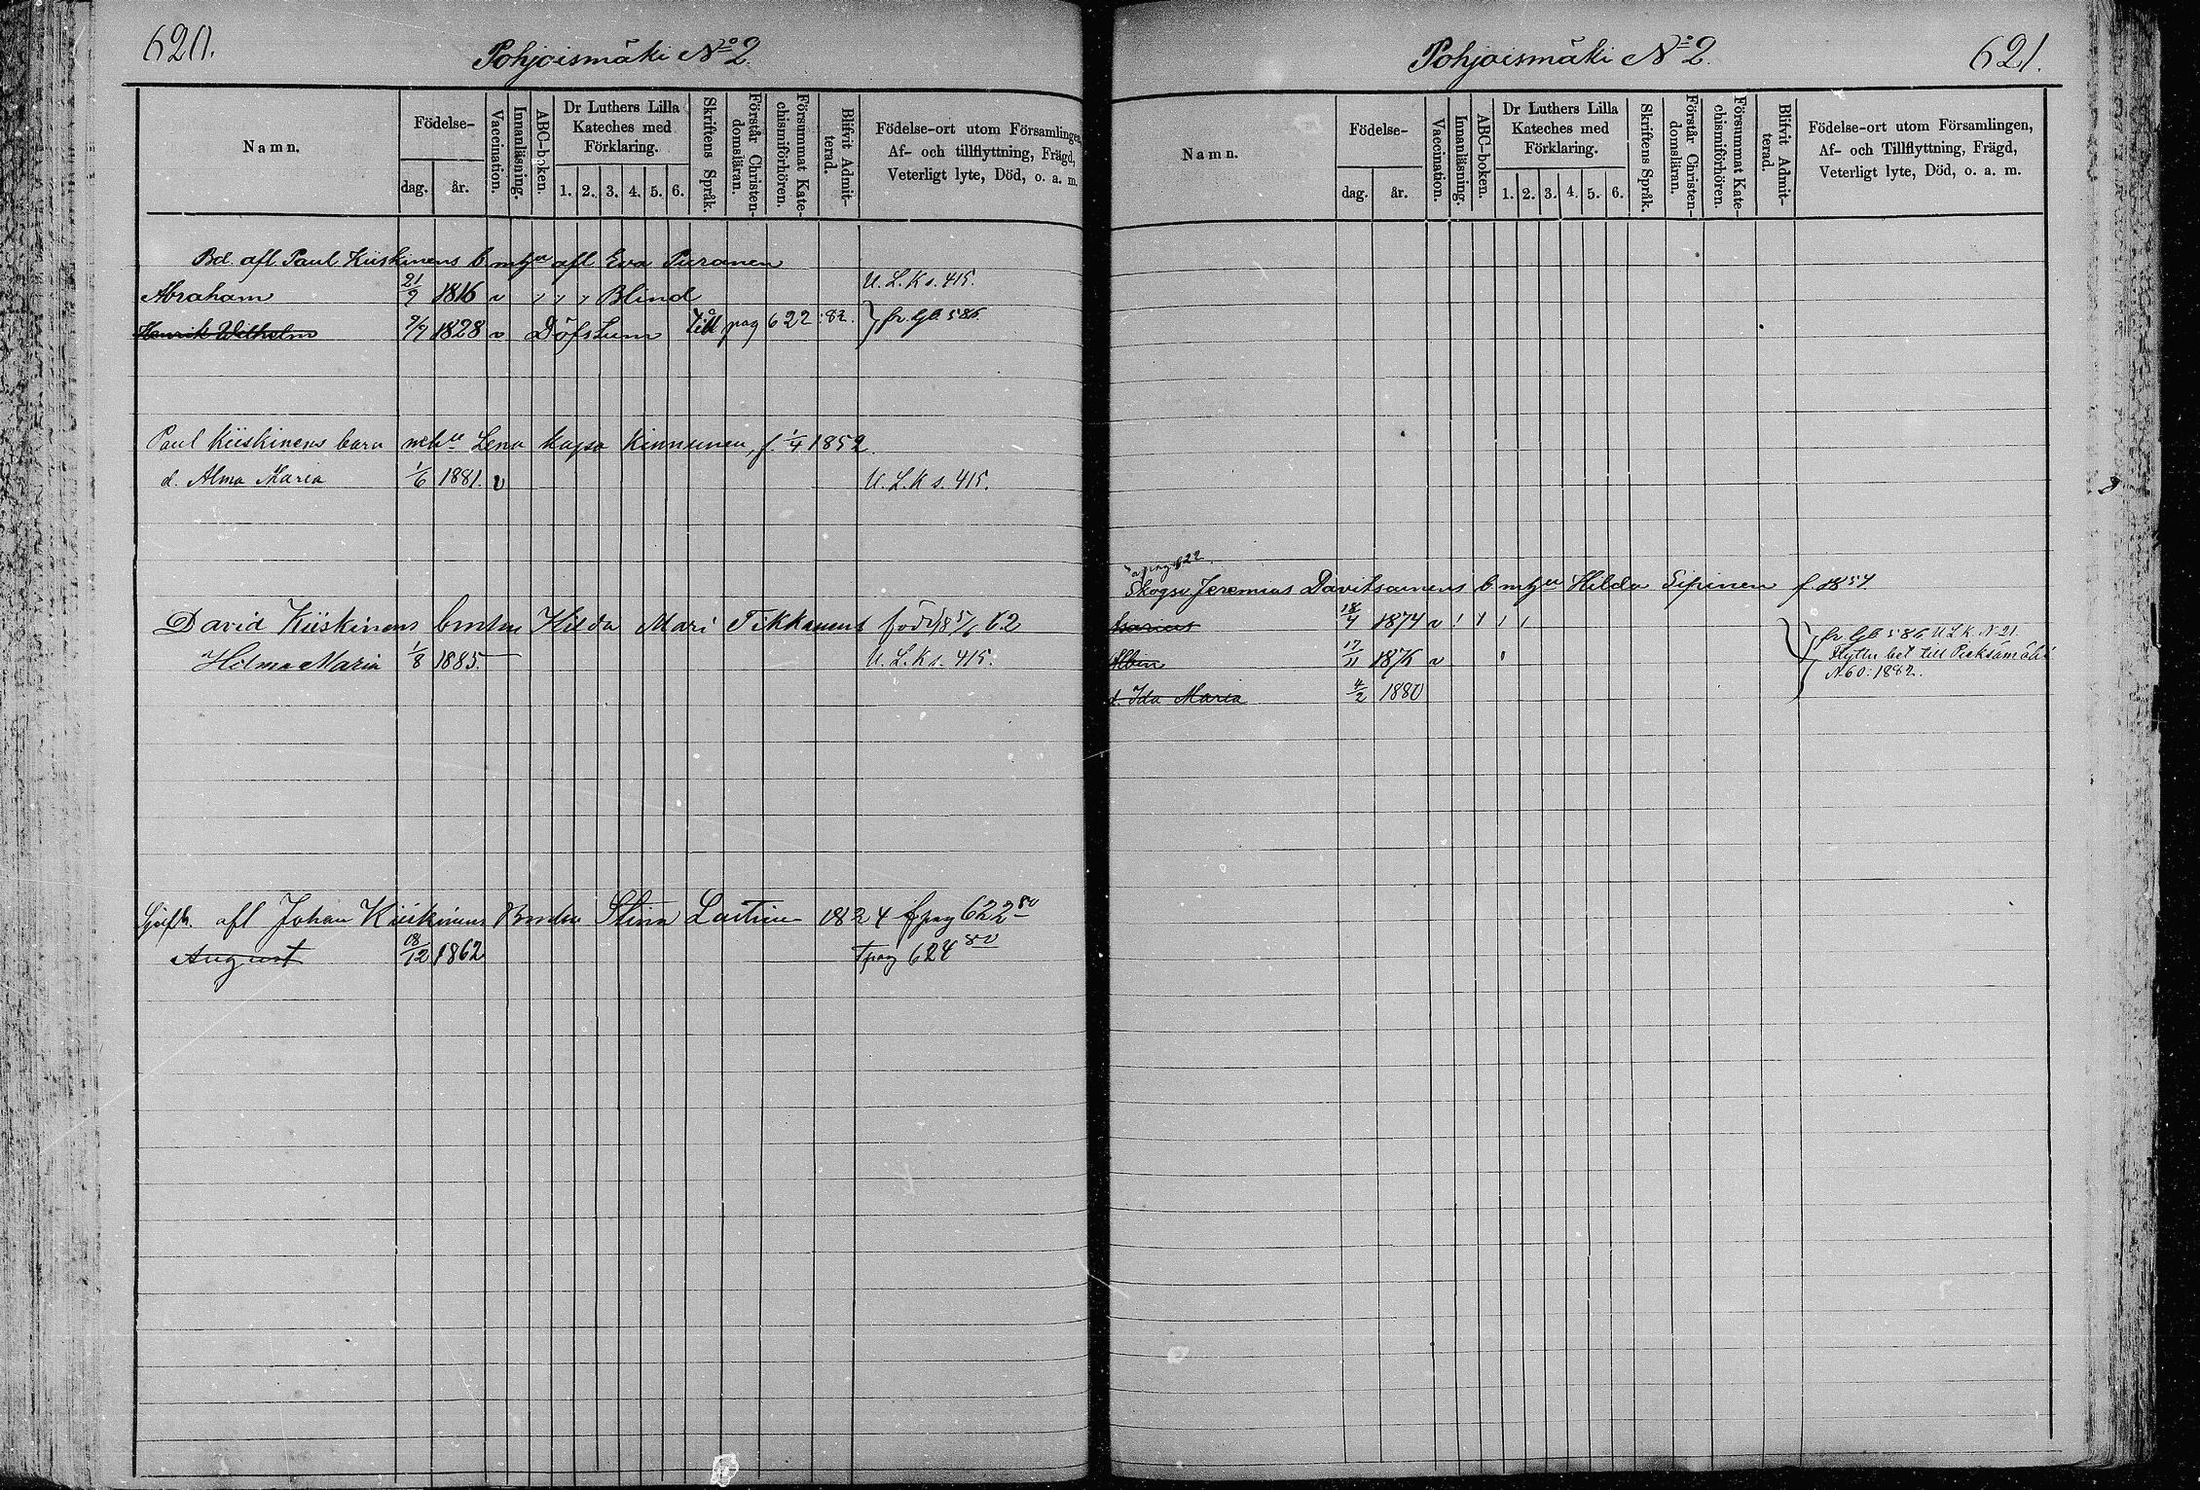 620.
Pohjoismäki No 2.
Namn.
Födelse-
dag.
år.
Vaccination.
Innanläsning.
ABC-boken.
Dr Luthers Lilla
Kateches med
Förklaring.
1. 2. 3. 4. 5. 6.
Skriftens Språk.
Förstår Christen-
domsläran.
Försummat Kate-
chismiförhören.
Blifvit Admit-
terad.
Födelse-ort utom Församlingen,
Af- och tillflyttning, Frägd,
Veterligt lyte, Död, o. a. m.
Bd. afl Paul Kiiskinens b. afl Eva Puranen
Abraham 21/9 1816 v Blind U. L. K s. 415.
Henrik Wilhelm 9/7 1828 v Döfstum Till pag 622:82. fr. Gb. 586
Paul Kiiskinens barn Lena Kajsa Kinnunen, f. 1/4 1852.
d. Alma Maria 1/6 1881. v U. L. K s. 415.
David Kiiskinens Hilda Mari Tikkanens född 18 5/1 62
Hilma Maria 1/8 1885. U. L. K s. 415.
afl Johan Kiiskinens Stina 1824 fpag 622 80
August 18/12 1862 Tpag 624 80
Pohjoismäki No 2.
621.
Namn.
Födelse-
dag.
år.
Vaccination.
Innanläsning.
ABC-boken.
Dr Luthers Lilla
Kateches med
Förklaring.
1. 2. 3. 4. 5. 6.
Skriftens Språk.
Förstår Christen-
domsläran.
Försummat Kate-
chismiförhören.
Blifvit Admit-
terad.
Födelse-ort utom Församlingen,
Af- och Tillflyttning, Frägd,
Veterligt lyte, Död, o. a. m.
pag 622.
Skogsv Jeremias Davitsainens b Hilda Sipinen f 1854.
18/4 1874 v
Albin 17/11 1876 v
d. Ida Maria 4/2 1880
fr Gb 586 U L K. N 21.
Flyttn bet till Pieksämäki
N 60: 1882.